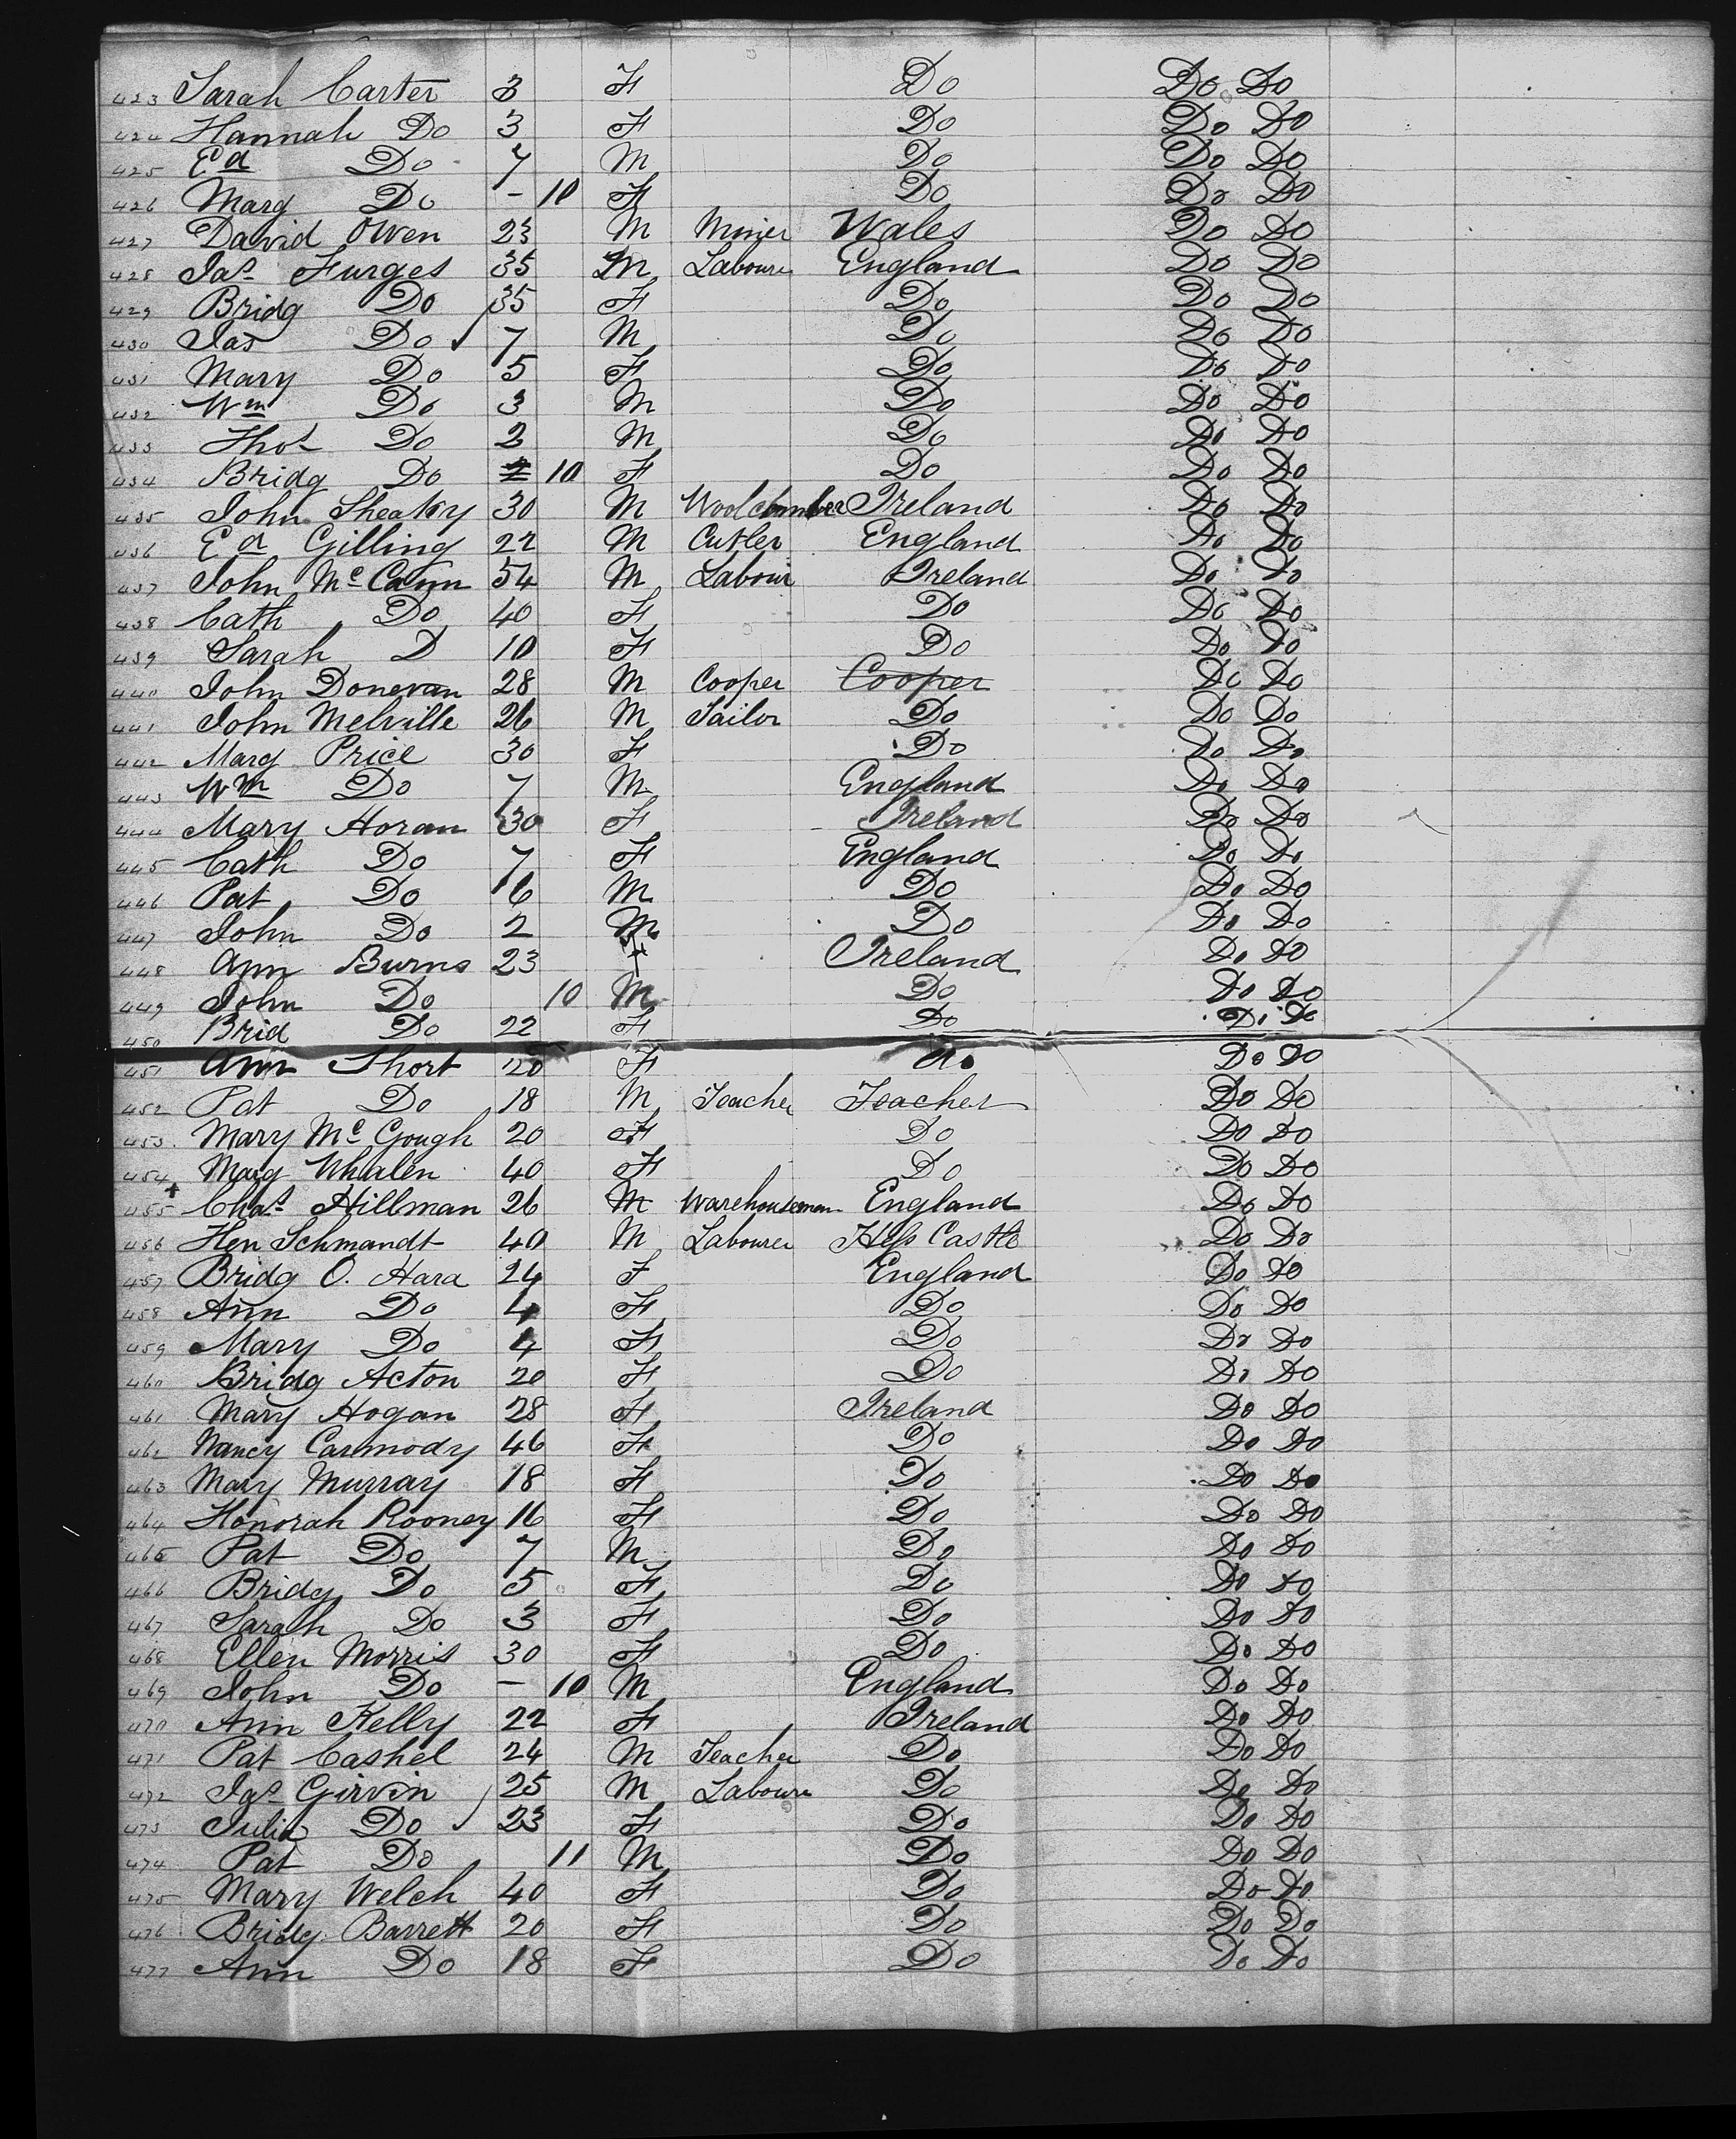 423 Sarah Carter 3 F Do Do Do
424 Hannah Do 3 F Do Do Do
425 Ed Do 7 M Do Do Do
426 Marg Do - 10 F Do Do Do
427 David Owen 23 M Miner Wales Do Do
428 Jas Furges 35 M Laboure England Do Do
429 Bridg Do 35 F Do Do Do
430 Jas Do 7 M Do Do Do
431 Mary Do 5 F Do Do Do
432 Wm Do 3 M Do Do Do
433 Thos Do 2 M Do Do Do
434 Bridg Do 10 F Do Do Do
435 John 30 M Ireland Do Do
436 Ed Gilling 22 M Cutler England Do Do
437 John McCann 54 M Labour Ireland Do Do
438 Cath Do 40 F Do Do Do
439 Sarah D 10 F Do Do Do
440 John Donevan 28 M Cooper Cooper Do Do
441 John Melville 26 M Tailor Do Do Do
442 Marg Price 30 F Do Do Do
443 Wm Do 7 M England Do Do
444 Mary Horan 30 F Ireland Do Do
445 Cath Do 7 F England Do Do
446 Pat Do 6 M Do Do Do
447 John Do 2 M Do Do Do
448 Ann Burns 23 F Ireland Do Do
449 John Do 10 M Do Do Do
450 Brid Do 22 F Do Do Do
451 Ann Short 20 F Do Do Do
452 Pat Do 18 M Teacher Teacher Do Do
453 Mary McGough 20 F Do Do Do
454 Marg Whalen 40 F Do Do Do
455 Chas Hillman 26 M Warehouseman England Do Do
456 Hen Schmandt 40 M Labourer Hess Castle Do Do
457 Bridg O. Hara 24 F England Do Do
458 Ann Do 4 F Do Do Do
459 Mary Do 4 F Do Do Do
460 Bridg Acton 20 F Do Do Do
461 Mary Hogan 28 F Ireland Do Do
462 Nancy Carmody 46 F Do Do Do
463 Mary Murray 18 F Do Do Do
464 Honorah Rooney 16 F Do Do Do
465 Pat Do 7 M Do Do Do
466 Bridg Do 5 F Do Do Do
467 Sarah Do 3 F Do Do Do
468 Ellen Morris 30 F Do Do Do
469 John Do - 10 M England Do Do
470 Ann Kelly 22 F Ireland Do Do
471 Pat Cashel 24 M Teacher Do Do Do
472 Jas Girvin 25 M Laboure Do Do Do
473 Julia Do 23 F Do Do Do
474 Pat Do 11 M Do Do Do
475 Mary Welch 40 F Do Do Do
476 Bridg Barrett 20 F Do Do Do
477 Ann Do 18 F Do Do Do